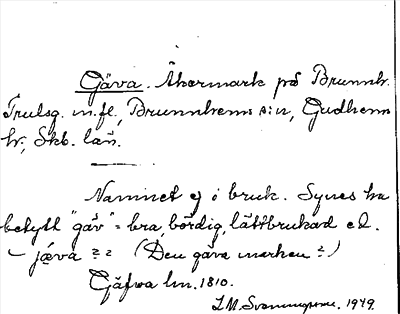 Gäva. Åkermark på Brunnh.
Trulsg. m.fl., Brunnhems s:n, Gudhems
hr, Skb. län.
Namnet ej i bruk. Synes ha
betytt "gäv" = bra, bördig, lättbrukad e.d.
– jæva ?? (Den gäva marken?)
Gäfwa lm. 1810.
1949.